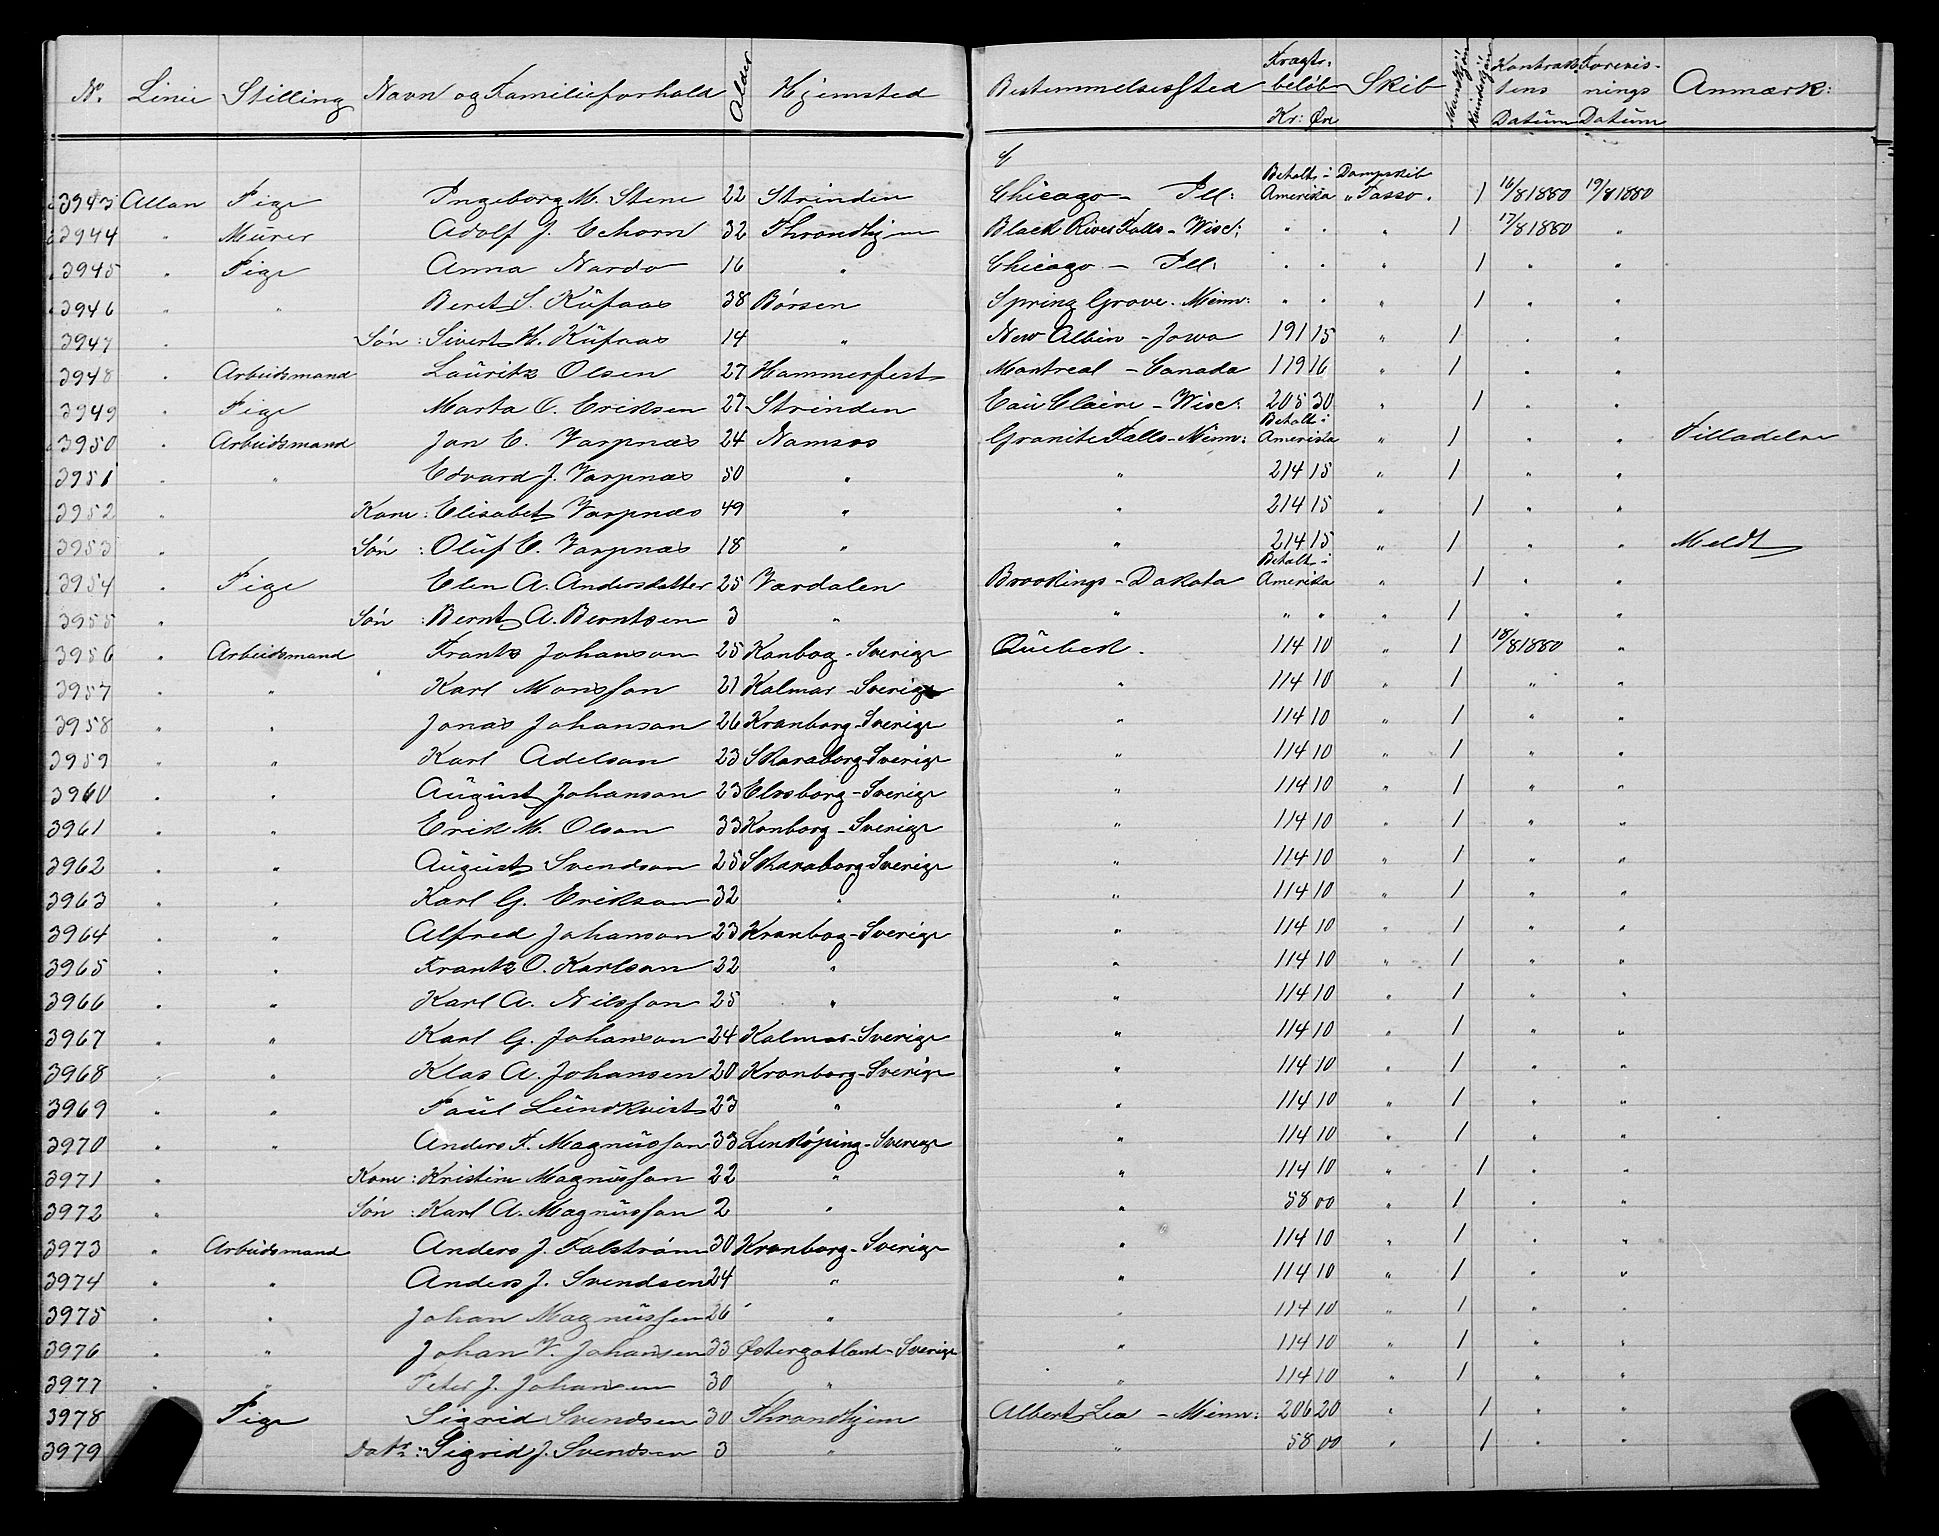 No. Linie Stilling Navn og Familieforhold Alder Hjemsted Bestemmelsessted Fragtbeløb Kr: Øre Skib Mandkjøn Kvindekjøn Kontraktens Datum Forevisnings Datum Anmærk:
3943 Allan Pige Ingeborg M. Stene 22 Strinden Chicago - Ill: Betalt i Amerika Dampskib "Tasso" 1 16/8 1880 19/8 1880
3944 " Murer Adolf J. Echorn 32 Throndhjem Black River Falls - Wisc: " " " 1 17/8 1880 "
3945 " Pige Anna Nardo 16 " Chicago - Ill: " " " 1 " "
3946 " " Beret S. Kufaas 38 Børsen Spring Grove. Minn: " " " 1 " "
3947 " Søn: Sivert H. Kufaas 14 " New Albin - Jowa 191 15 " 1 " "
3948 " Arbeidsmand Lauritz Olsen 27 Hammerfest Montreal - Canada 119 16 " 1 " "
3949 " Pige Marta O. Eriksen 27 Strinden Eau Claire - Wisc: 205 30 " 1 " "
3950 " Arbeidsmand Jon E. Varpnæs 24 Namsos Granite Falls - Minn: Betalt i Amerika " 1 " " Tilladelse
3951 " " Edvard J. Varpnæs 50 " " 214 15 " 1 " "
3952 " Kone: Elisabet Varpnæs 49 " " 214 15 " 1 " "
3953 " Søn: Oluf E. Varpnæs 18 " " 214 15 " 1 " " Meldt
3954 " Pige Elen A. Andersdatter 25 Værdalen Brookings - Dakota Betalt i Amerika " 1 " "
3955 " Søn: Bernt A. Berntsen 3 " " " " " 1 " "
3956 " Arbeidsmand Frantz Johanson 25 Konbog - Sverige Quebek. 114 10 " 1 18/8 1880 "
3957 " " Karl Monsson 21 Kalmar - Sverige " 114 10 " 1 " "
3958 " " Jonas Johanson 26 Kronborg - Sverige " 114 10 " 1 " "
3959 " " Karl Adelson 23 Skaraborg - Sverige " 114 10 " 1 " "
3960 " " August Johanson 23 Elvsborg - Sverige " 114 10 " 1 " "
3961 " " Erik M. Olson 33 Konborg - Sverige " 114 10 " 1 " "
3962 " " August Svendson 25 Skaraborg - Sverige " 114 10 " 1 " "
3963 " " Karl G. Erikson 32 " " 114 10 " 1 " "
3964 " " Alfred Johanson 23 Kronbog - Sverige " 114 10 " 1 " "
3965 " " Frantz O. Karlson 22 " " 114 10 " 1 " "
3966 " " Karl A. Nilsson 25 " " 114 10 " 1 " "
3967 " " Karl G. Johanson 24 Kalmar - Sverige " 114 10 " 1 " "
3968 " " Klas A. Johansen 20 Kronborg - Sverige " 114 10 " 1 " "
3969 " " Paul Lundkvist 23 " " 114 10 " 1 " "
3970 " " Anders F. Magnusson 33 Linkøping - Sverige " 114 10 " 1 " "
3971 " Kone: Kristine Magnusson 22 " " 114 10 " 1 " "
3972 " Søn: Karl A. Magnusson 2 " " 58 00 " 1 " "
3973 " Arbeidsmand Anders J. Falstrøm 30 Kronborg - Sverige " 114 10 " 1 " "
3974 " " Anders J. Svendsen 24 " " 114 10 " 1 " "
3975 " " Johan Magnussen 26 " " 114 10 " 1 " "
3976 " " Johan V. Johansen 33 Østergotland - Sverige " 114 10 " 1 " "
3977 " " Peter J. Johansen 30 " " 114 10 " 1 " "
3978 " Pige Sigrid Svendsen 30 Throndhjem Albert Lea - Minn: 206 20 " 1 " "
3979 " Datr: Sigrid J. Svendsen 3 " " 58 00 " 1 " "